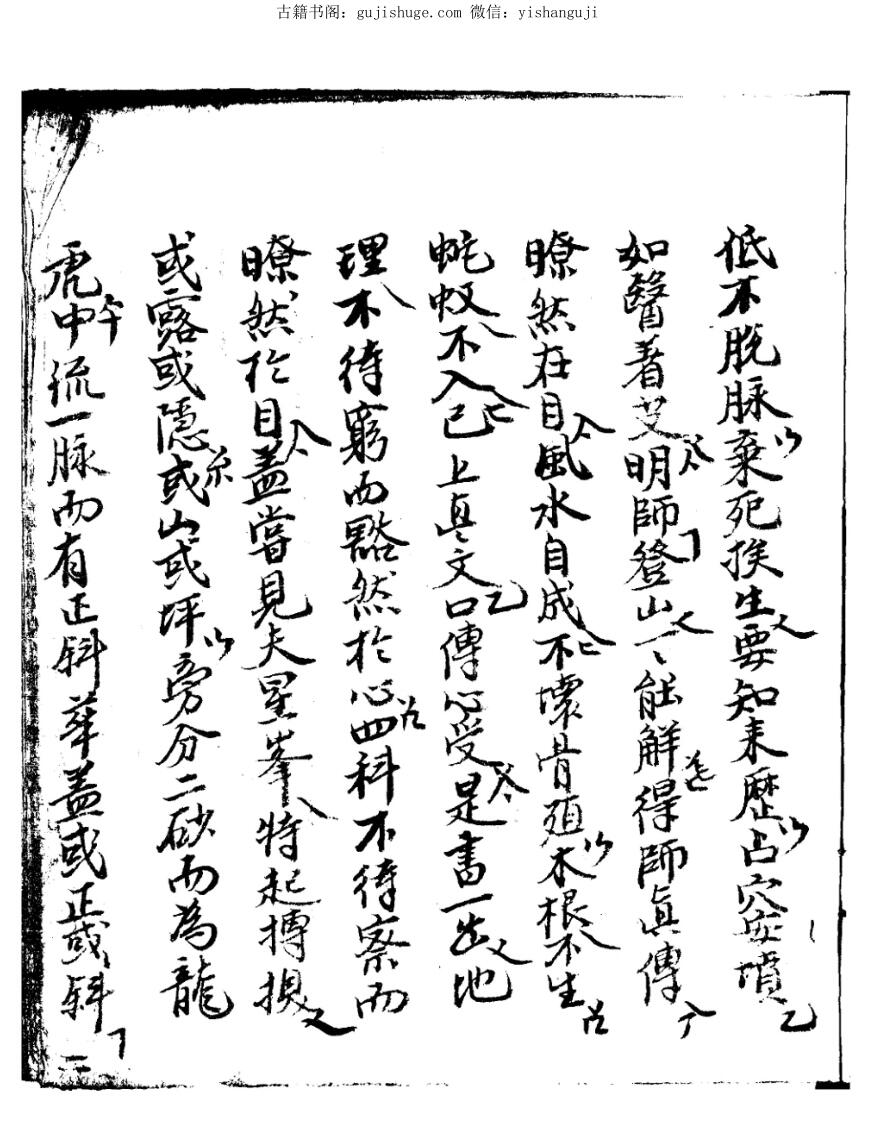 古籍书阁：gujishuge.com 微信：yishanguji
低不脱脉棄死挨生要知来歷占穴安墳
如醫着艾明師登山一〻能解得師眞傳
瞭然在目風水自成不壞骨殖木根不生
蛇蚁不入已上真文口傳心受是書一出地
理不待窮而豁然於心四科不待察而
瞭然於目盖嘗見夫星峯特起摶换
或露或隱或山或坪旁分二砂而為龍
虎中流一脉而有正斜華盖或正或斜